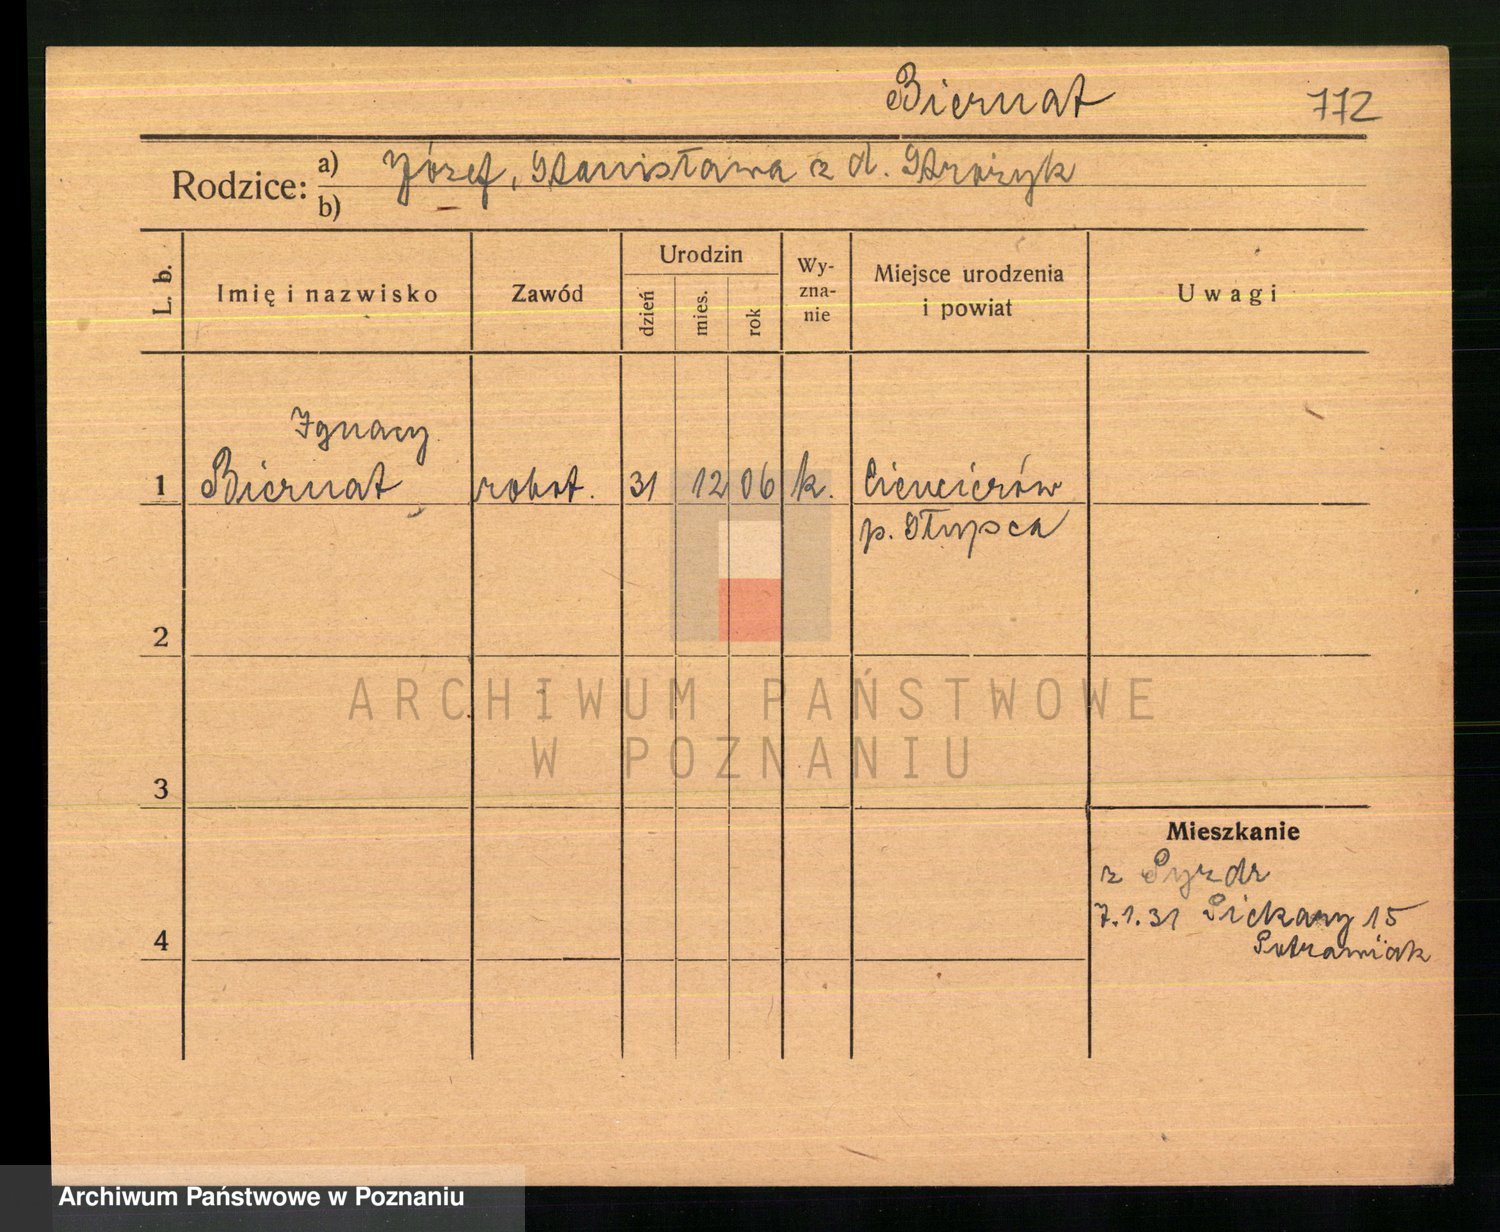 Biernat 772
Rodzice: a) Józef, Stanisława z d. Strożyk
b)
L. b. Imię i nazwisko Zawód Urodzin dzień mies. rok Wy-zna-nie Miejsce urodzenia i powiat Uwagi
Ignacy
1 Biernat robot. 31 12 06 k. Ciencierów
p. Słupca
2
3
Mieszkanie
z Pyzdr
7.1.31 Piekary 15
4 Potrawiak
ARCHIWUM PAŃSTWOWE
W POZNANIU
Archiwum Państwowe w Poznaniu